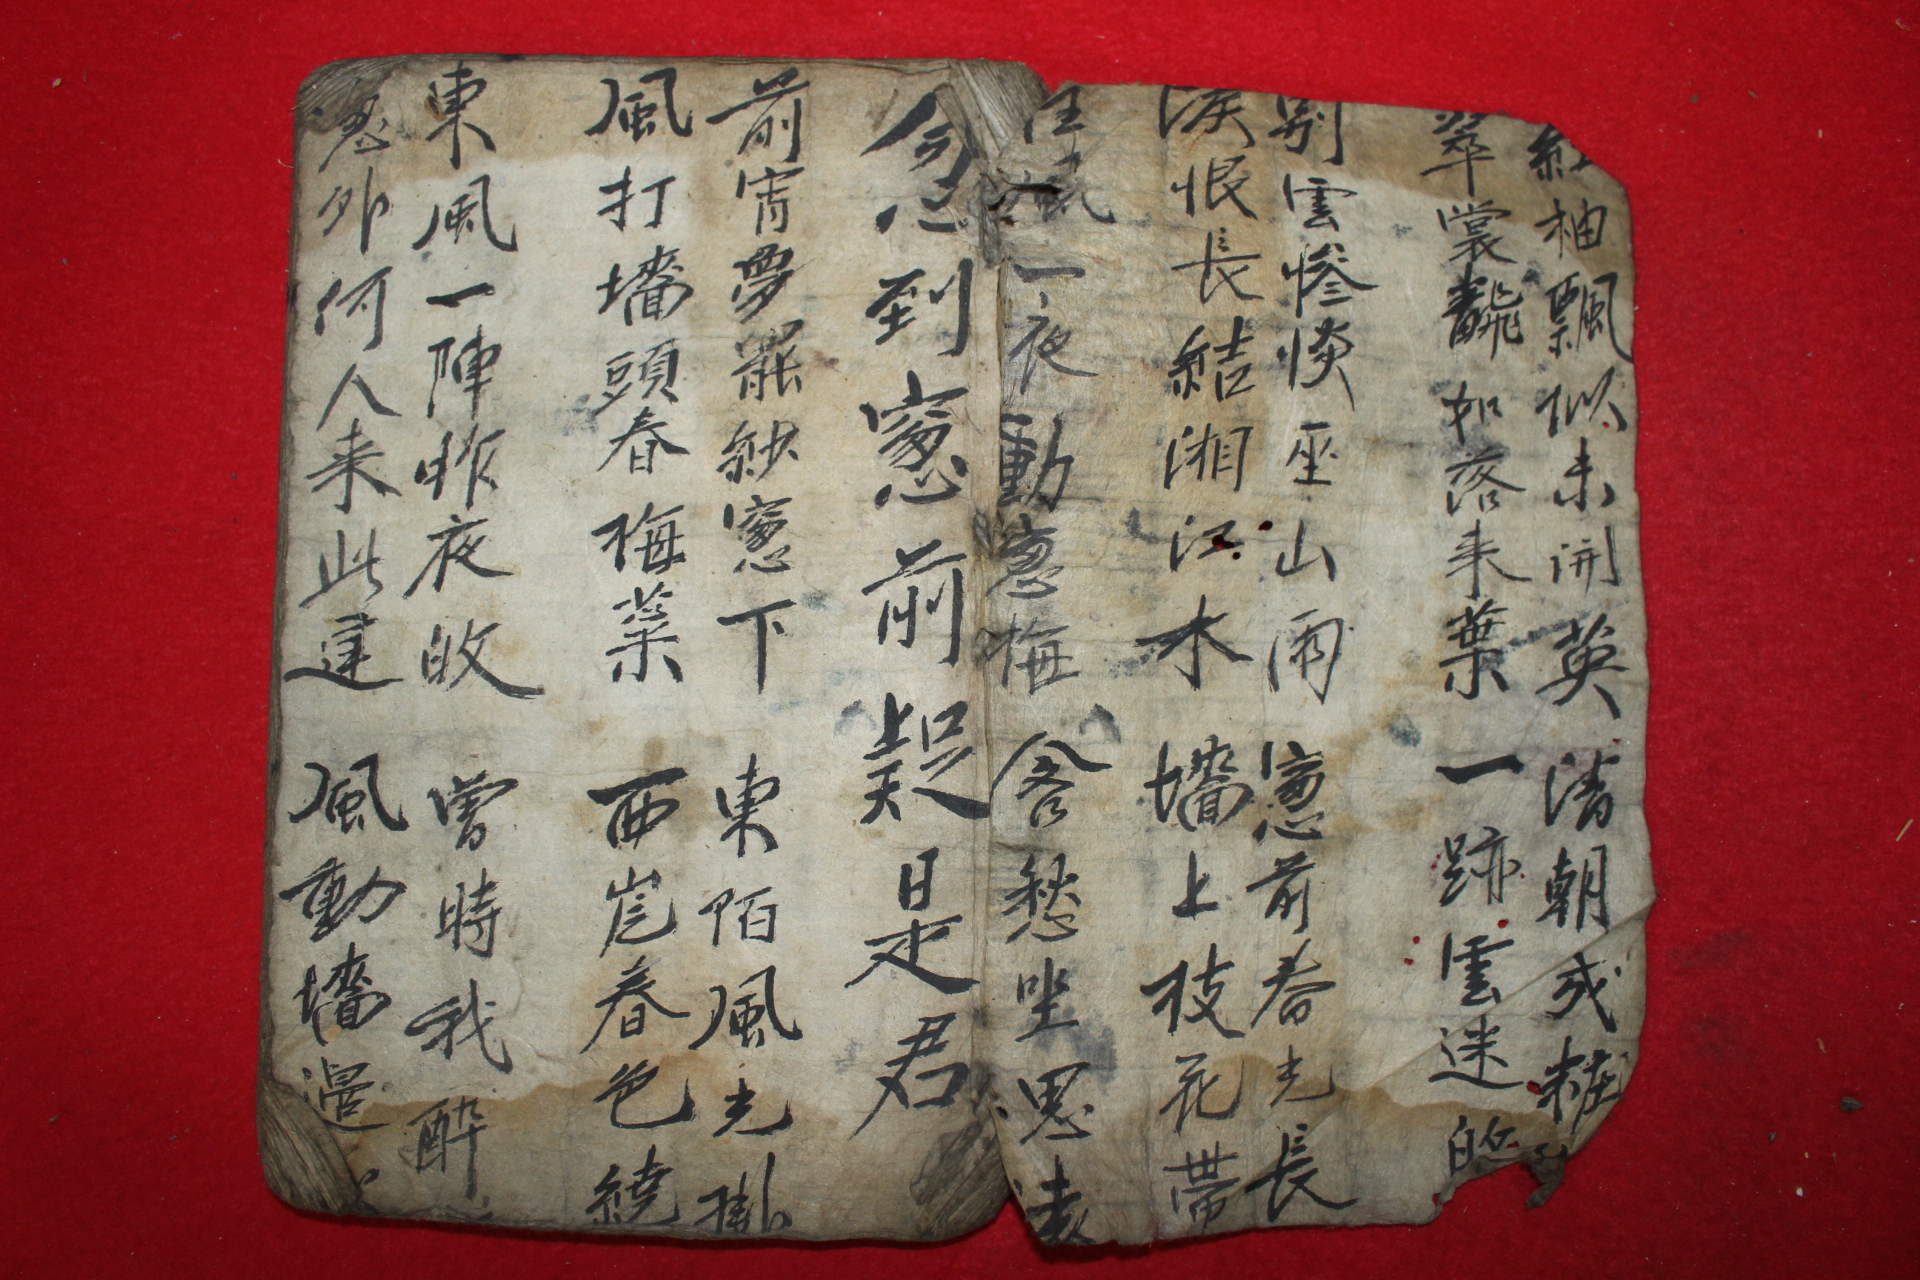 紅袖飄似未開英 清朝或粧
翠裳飜如落来葉 一跡雲迷的
別雲惨惔巫山雨 窓前春光長
淚恨長結湘江木 墻上枝花帶
狂風一夜動窓梅 含愁坐思遠
忽到窓前疑是君
前宵夢罷紗窓下 東陌風光掛
風打墻頭春梅蘂 西岸春色繞
東風一陣昨夜收 曾時我酔
窓外何人来此遲 風動墻邊